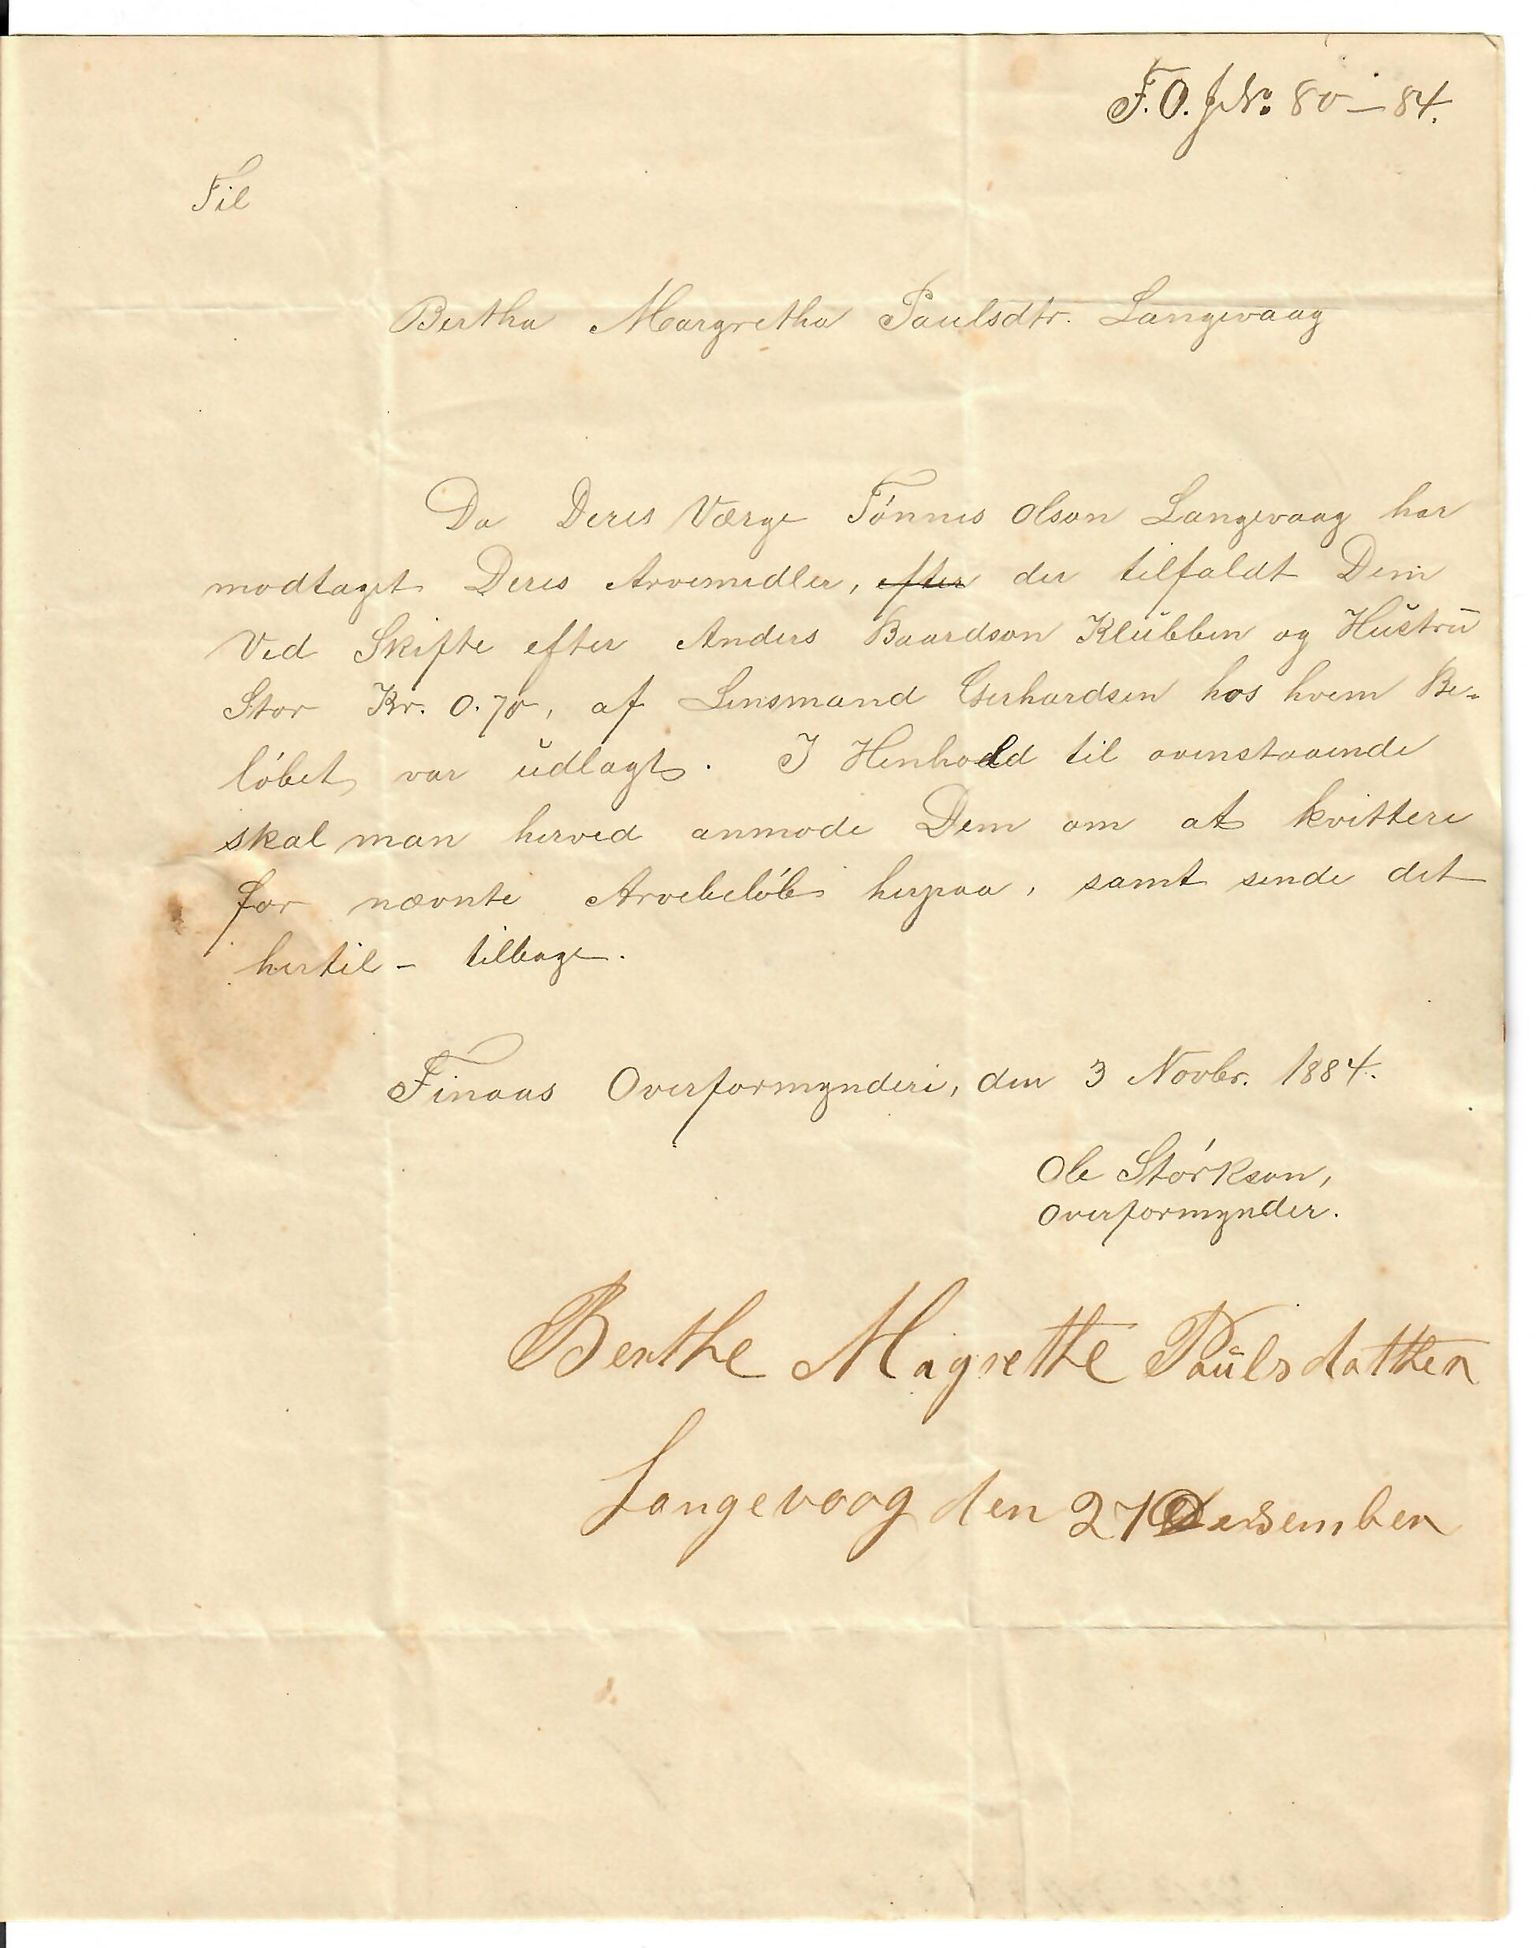 F.O.J.No. 80-84.
Til
Bertha Margretha Paulsdtr. Langevaag
Da Deres Værge Tónnes Olson Langevaag har
modtaget Deres Arvemidler, efter der tilfaldt Dem
Ved Skifte efter Anders Baardson Klübben og Hüstrü
Stor Kr. 0.70, af Lensmand Gerhardsen hos hvem Be-
lóbet var üdlagt. I Henhold til ovenstaaende
skal man herved anmode Dem om at kvittere
for nævnte Arvebelób herpaa, samt sende det
hertil - tilbage.
Finaas Overformynderi, den 3 Novbr. 1884.
Ole Stórkson,
Overformynder.
Berthe Magrethe Paülsdatther
Langevaag den 27 Desember